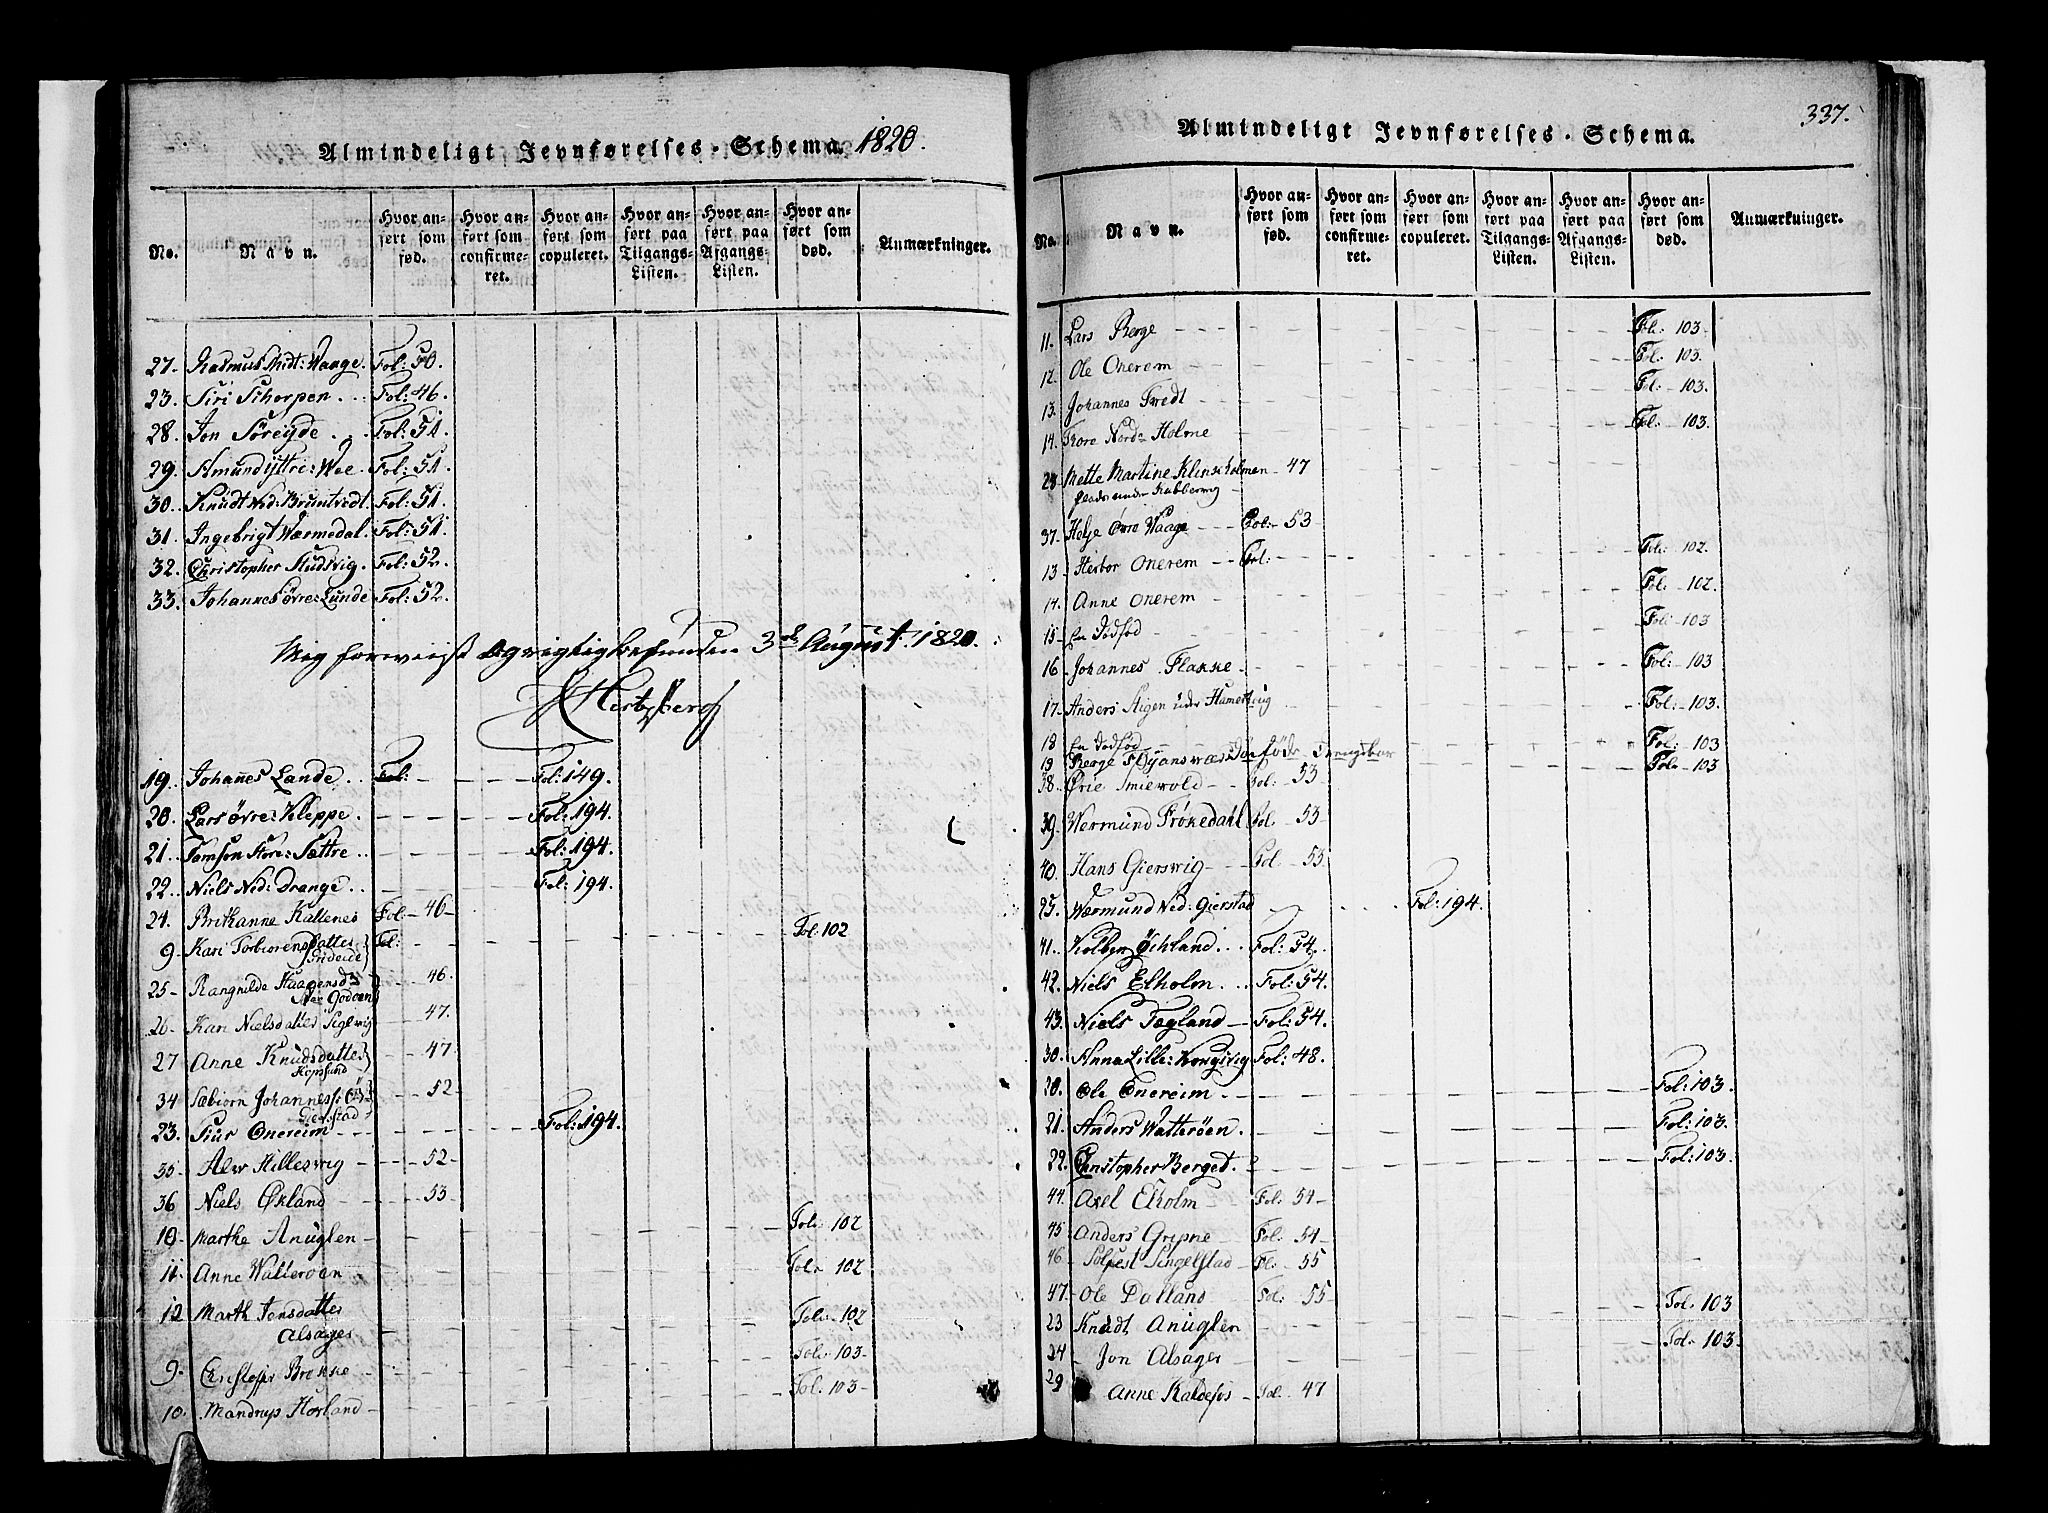 Almindeligt Jevnførelses-Schema 1820.
No. Navn. Hvor anført som fød. Hvor anført som confirmeret. Hvor anført som copuleret. Hvor anført paa Tilgangs-Listen. Hvor anført paa Afgangs-Listen. Hvor anført som død. Anmærkninger.
27. Rasmus Midt: Waage. Fol: 50.
23. Siri Schorpen Fol: 46.
28. Jon Söreide Fol: 51.
29. Amund yttre: Wee Fol: 51.
30. Knudt Ned: Bruntvedt. Fol: 51.
31. Ingebrigt Wærmedal. Fol: 51.
32. Christopher Fol: 52.
33. Johannes övre: Lunde Fol: 52.
Mig forevist og rigtig befunden 3d August: 1820.
Hertzberg
19. Johanes Lande Fol: Fol: 149.
20. Lars övre: Kleppe Fol: 194.
21. Tomson Store: Sættre Fol: 194.
22. Niels Ned: Drange Fol: 194.
24. Brithanne Kallenes Fol- 46-
9. Kari Torbiorensdatter Fol: Fol: 102
25- Rangnilde Haagensd: 46.
Godøen
26- Kari Nielsdatter Siglevig 47.
27 Anne Knudsdatter 47
Hopsund
34 Sæbiorn Johanness: 52
Gierstad
23. Siur Onereim Fol: 194.
35 Alv Hillesvig 52
36 Niels Økland 53
10- Marthe Anuglen Fol. 102
11. Anne Watterøen Fol. 102
12 Marth Jensdatter Fol. 102
Alsager
9. Christopher Brekke Fol. 103
10. Mandrup Hovland Fol. 103
337.
Almindeligt Jevnførelses-Schema.
No. Navn. Hvor anført som fød. Hvor anført som confirmeret. Hvor anført som copuleret. Hvor anført paa Tilgangs-Listen. Hvor anført paa Afgangs-Listen. Hvor anført som død. Anmærkninger.
11. Lars Berge Fol: 103
12. Ole Onerem Fol. 103.
13. Johannes Twedt Fl: 103.
14. Tore Nord: Holme Fol: 103.
28 Mette Martine Klinsholmen 47
under
37. Helje Övre Waage Fol: 53
13 Herbor Onerem Fol: Fol: 102.
14. Anne Onerem Fol: 102
15 En Dödfød Fol: 103
16 Johannes Flakke Fol: 103
17. Anders Stigen under Hamerhoug Fol: 103.
18 En Dödfød Fol: 103
19 Berge Fol: 103
38. Smievold Fol: 53
39. Wermund Frökedahl Fol. 53
40 Hans Gierswig Fol 53
25. Wærmund Ned: Gierstad Fol: 194.
41. Kolben Öchland Fol: 54.
42. Niels Elholm Fol: 54.
43. Niels Tægland Fol: 54.
30. Anna Lille: Kongsvig Fol: 48.
20. Ole Onereim Fol: 103.
21. Anders Watteröen Fol: 103.
22. Christopher Berget Fol: 103.
44. Axel Elholm Fol: 54
45 Anders Gripne Fol: 54
46 Singelstad Fl: 55
47. Ole Dalland Fol: 55
23 Knudt Anuglen Fol: 103
24 Jon Alsager Fol: 103
29 Anne Kaldefos Fol. 47